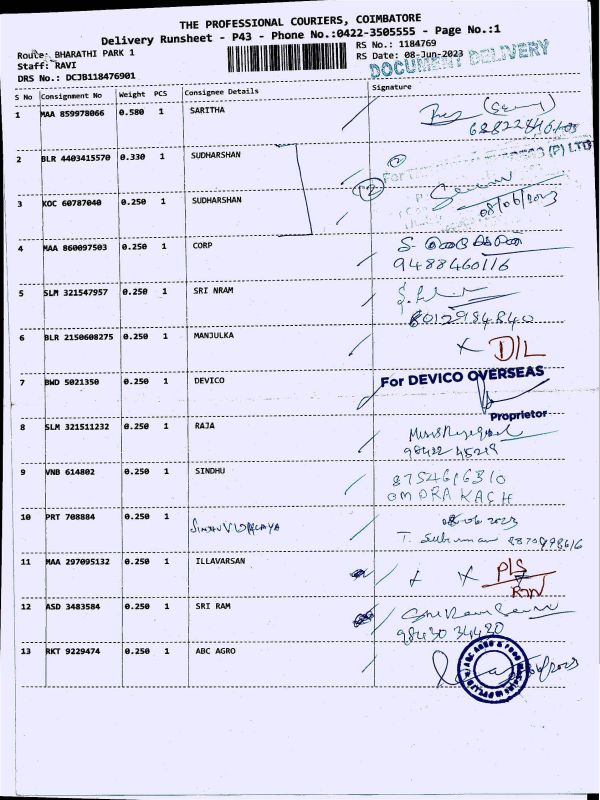 THE PROFESSIONAL COURIERS, COIMBATORE
Delivery Runsheet - P43 - Phone No.:0422-3505555 - Page No.:1
Route: BHARATHI PARK 1
Staff: RAVI
DRS No.: DCJB118476901
RS No.: 1184769
RS Date: 08-Jun-2023
DOCUMENT DELIVERY
S No Consignment No Weight PCS Consignee Details Signature
1 MAA 859978066 0.580 1 SARITHA
2 BLR 4403415570 0.330 1 SUDHARSHAN
(P) LTD
3 KOC 60787040 0.250 1 SUDHARSHAN
08/06/2023
4 MAA 860097503 0.250 1 CORP
9488460116
5 SLM 321547957 0.250 1 SRI NRAM
8012984840
6 BLR 2150608275 0.250 1 MANJULKA X D/L
7 BWD 5021350 0.250 1 DEVICO
For DEVICO OVERSEAS
Proprietor
8 SLM 321511232 0.250 1 RAJA
9 VNB 614802 0.250 1 SINDHU
8754616310
OM PRAKASH
10 PRT 708884 0.250 1
08-06-2023
11 MAA 297095132 0.250 1 ILLAVARSAN X
12 ASD 3483584 0.250 1 SRI RAM
98430 34420
13 RKT 9229474 0.250 1 ABC AGRO